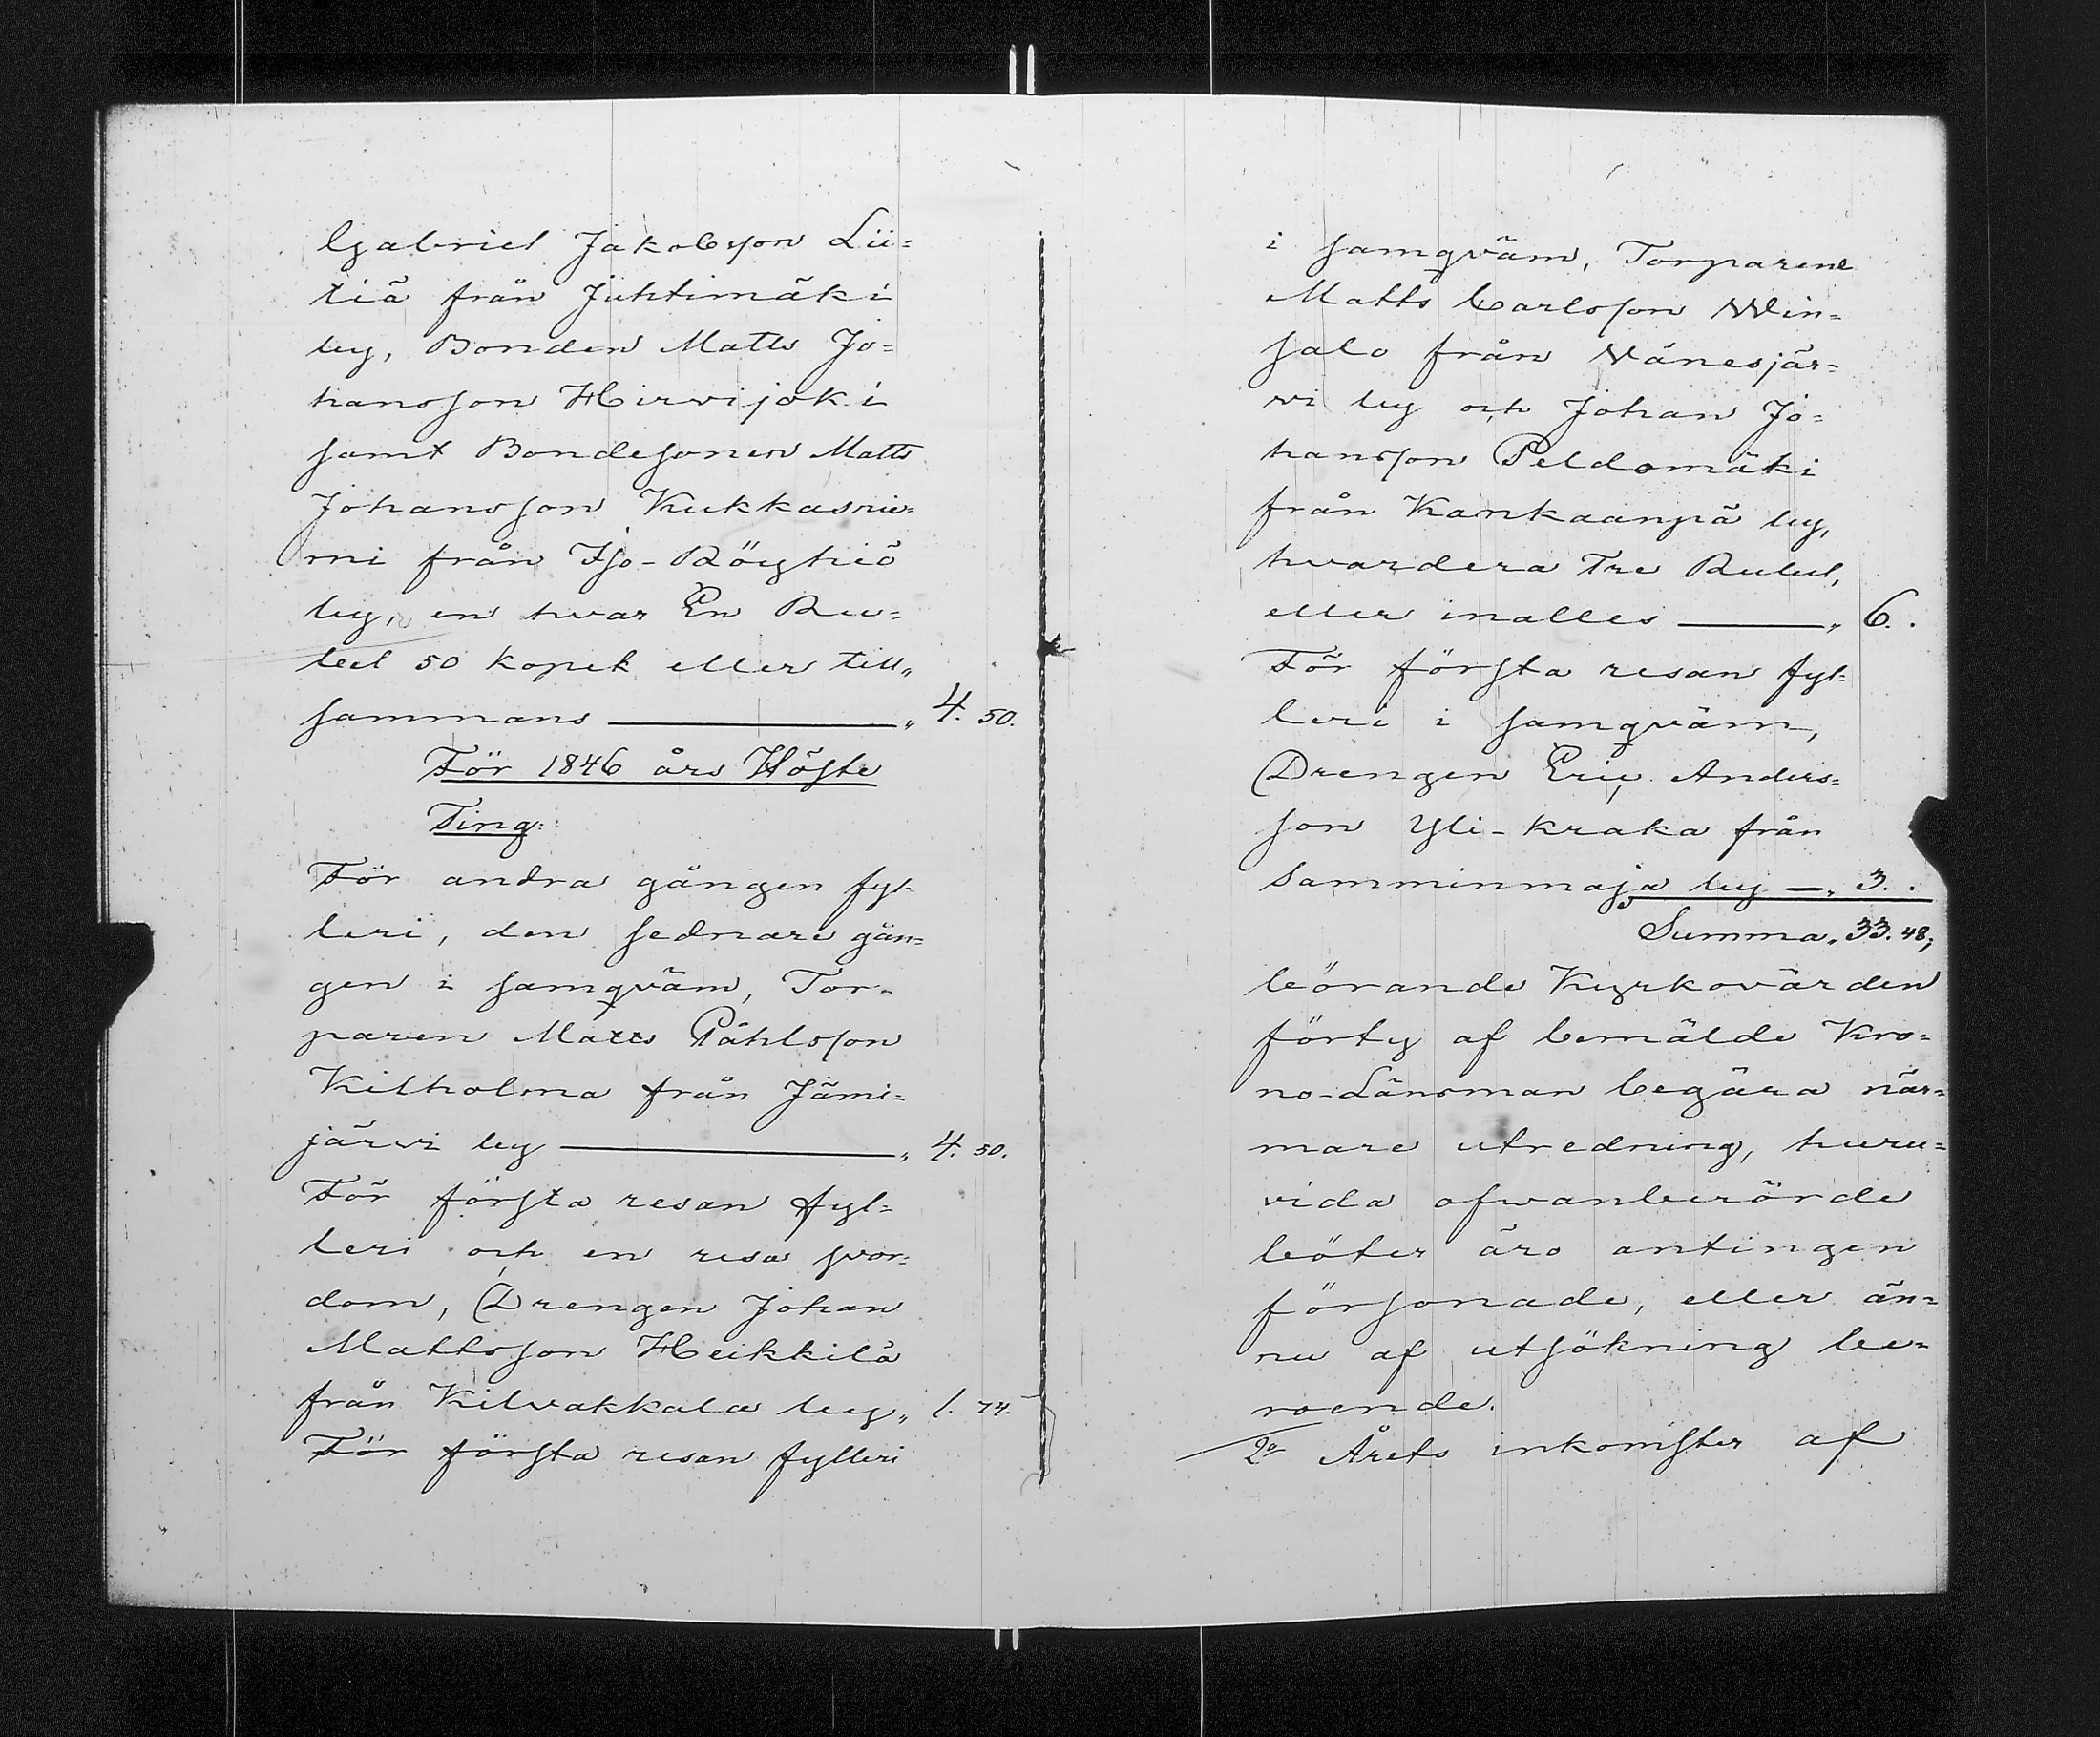 Gabriel Jakobsson Lii=
tiä från Juhtimäki
by, Bonden Matts Jo=
hansson Hirvijoki
samt Bondesonen Matts
Johansson Kukkasnie=
mi från Iso-Röyhiö
by, en hvar En Ru=
bel 50 kopek eller till„
sammans — „ 4. 50.
För 1846 års Höste
Ting:
För andra gången fyl-
leri, den sednare gån=
gen i samqväm, Tor-
paren Matts Påhlsson
Kiltholma från Jämi=
järvi by — „ 4. 50.
För första resan fyl=
leri och en resa svor=
dom, Drengen Johan
Mattsson Heikkilä
från Kilvakkala by„ 1. 74.
För första resan fylleri
i samqväm, Torparene
Matts Carlsson Win=
salo från Vänesjär=
vi by och Johan Jo=
hansson Peldomäki
från Kankaanpä by,
hvardera Tre Rubel,
eller inalles — „ 6. .
För första resan fyl=
leri i samqväm,
Drengen Eric Anders=
son Yli-Kraka från
Samminmaja by — „ 3. .
Summa„ 33. 48;
börande Kyrkovärden
förty af bemälde Kro=
no-Länsman begära när=
mare utredning, huru=
vida ofwanberörde
böter äro antingen
försonade, eller än=
nu af utsökning be=
roende.
2o Årets inkomster af